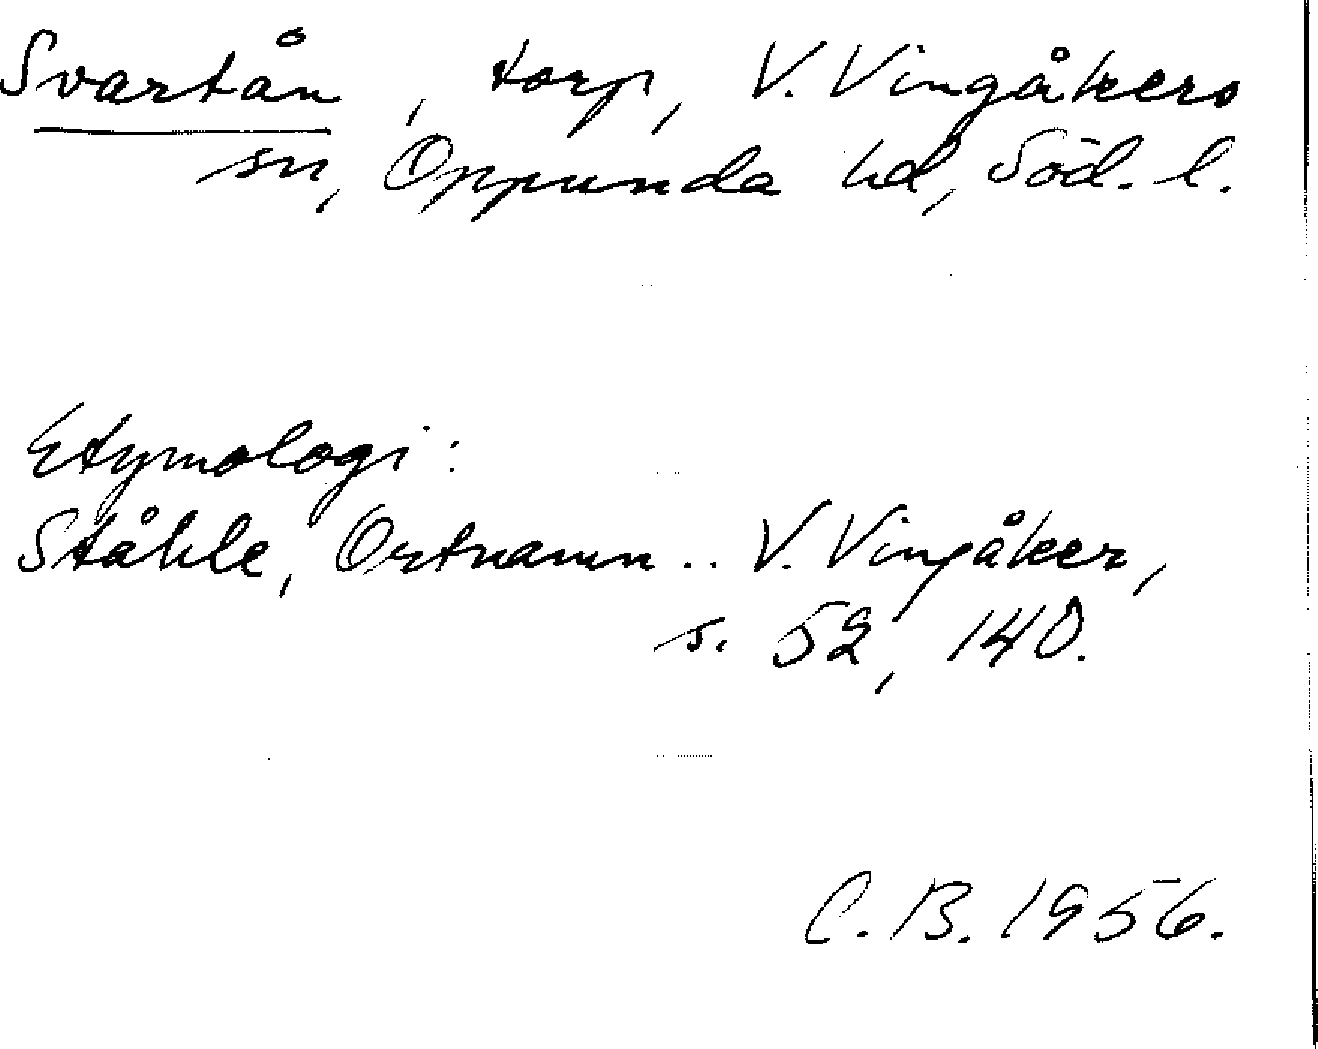 Svartån, torp, V. Vingåkers
sn, Oppunda hd, Söd. l.
Etymologi:
Ståhle, Ortnamn .. V. Vingåker,
s. 52, 140.
C. B. 1956.